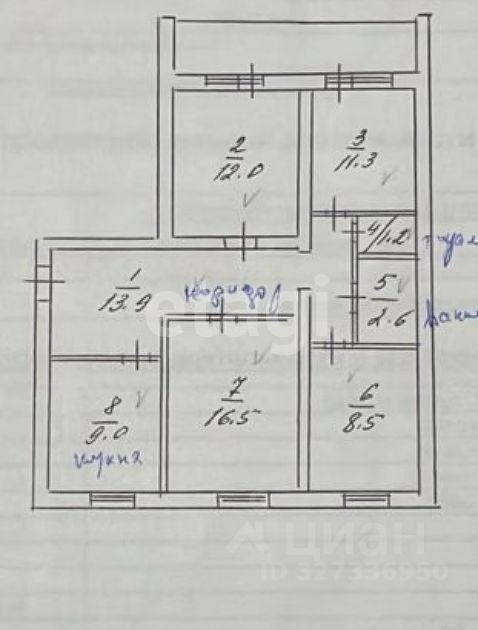 2
12.0
3
11.3
4/1.2
туал
1
13.9
коридор
5
2.6
ванн
etagi
8
9.0
кухня
7
16.5
6
8.5
циан
ID 327336950